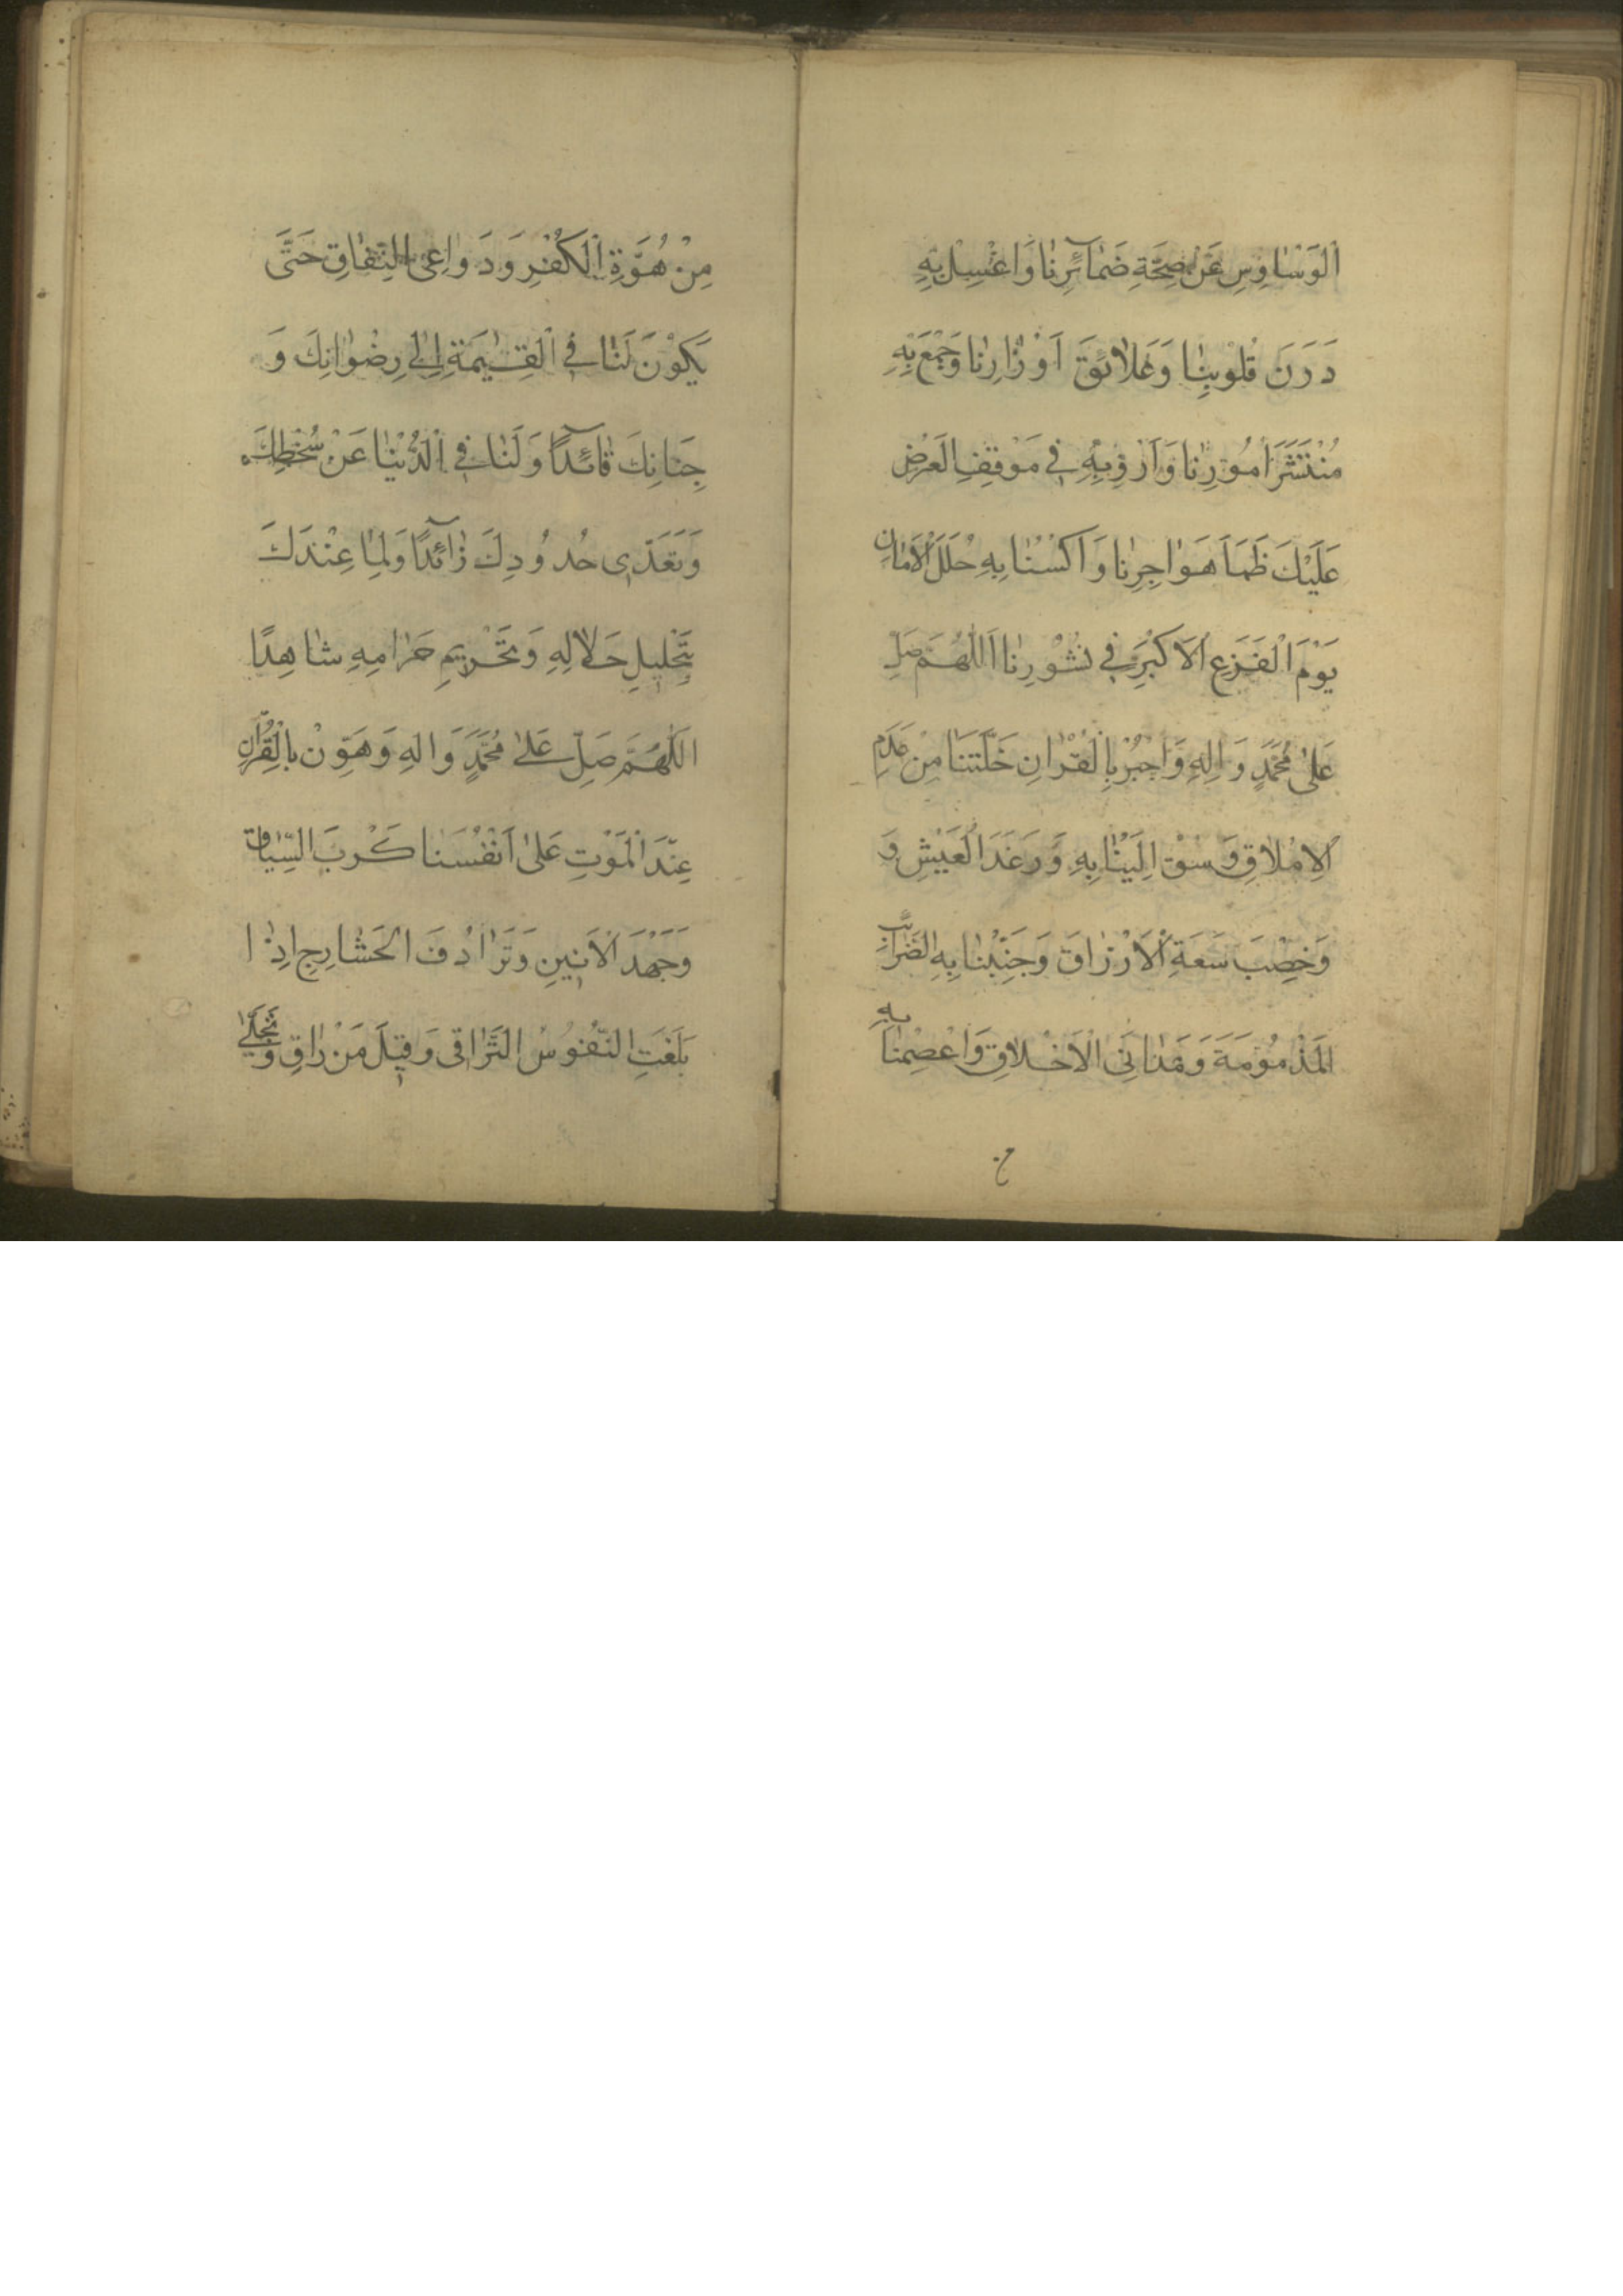 اَلْوَسَاوِسِ عَنْ صِحَّةِ ضَمَآئِرِنَا وَاغْسِلْ بِهِ
دَرَنَ قُلُوبِنَا وَعَلَائِقَ اَوْزَارِنَا وَجْمَعْ بِهِ
مُنْتَشَرَ اُمُورِنَا وَاَرْوِ بِهِ فِي مَوْقِفِ الْعَرْضِ
عَلَيْكَ ظَمَاَ هَوَاجِرِنَا وَاَكْسُنَا بِهِ حُلَلَ الْاَمَانِ
يَوْمَ الْفَزَعِ الْاَكْبَرِ فِي نُشُورِنَا اَللّٰهُمَّ صَلِّ
عَلٰى مُحَمَّدٍ وَاٰلِهِ وَاجْبُرْ بِالْقُرْاٰنِ خَلَّتَنَا مِنْ عَدَمِ
الْاِمْلَاقِ وَسُقْ اِلَيْنَا بِهِ وَرَغَدَ الْعَيْشِ وَ
وَخِصْبَ سَعَةِ الْاَرْزَاقَ وَجَنِّبْنَا بِهِ الضَّرَائِبَ
الْمَذْمُومَةَ وَمَدَانِيَ الْاَخْلَاقِ وَاعْصِمْنَا بِهِ
مِنْ هُوَّةِ الْكُفْرِ وَدَوَاعِي النِّفَاقِ حَتّٰى
يَكُوْنَ لَنَا فِي الْقِيٰمَةِ اِلٰى رِضْوَانِكَ وَ
جِنَانِكَ قَائِدًا وَلَنَا فِي الدُّنْيَا عَنْ سُخْطِكَ
وَتَعَدِّي حُدُودِكَ ذَآئِدًا وَلِمَا عِنْدَكَ
بِتَحْلِيلِ حَلَالِهِ وَتَحْرِيمِ حَرَامِهِ شَاهِدًا
اَللّٰهُمَّ صَلِّ عَلٰى مُحَمَّدٍ وَاٰلِهِ وَهَوِّنْ بِالْقُرْاٰنِ
عِنْدَ الْمَوْتِ عَلٰى اَنْفُسِنَا كَرْبَ السِّيَاقِ
وَجَهْدَ الْاَنِينِ وَتَرَادُفَ الْحَشَارِجِ اِذَا
بَلَغَتِ النُّفُوسُ التَّرَاقِيَ وَقِيلَ مَنْ رَاقٍ وَتَجَلّٰى